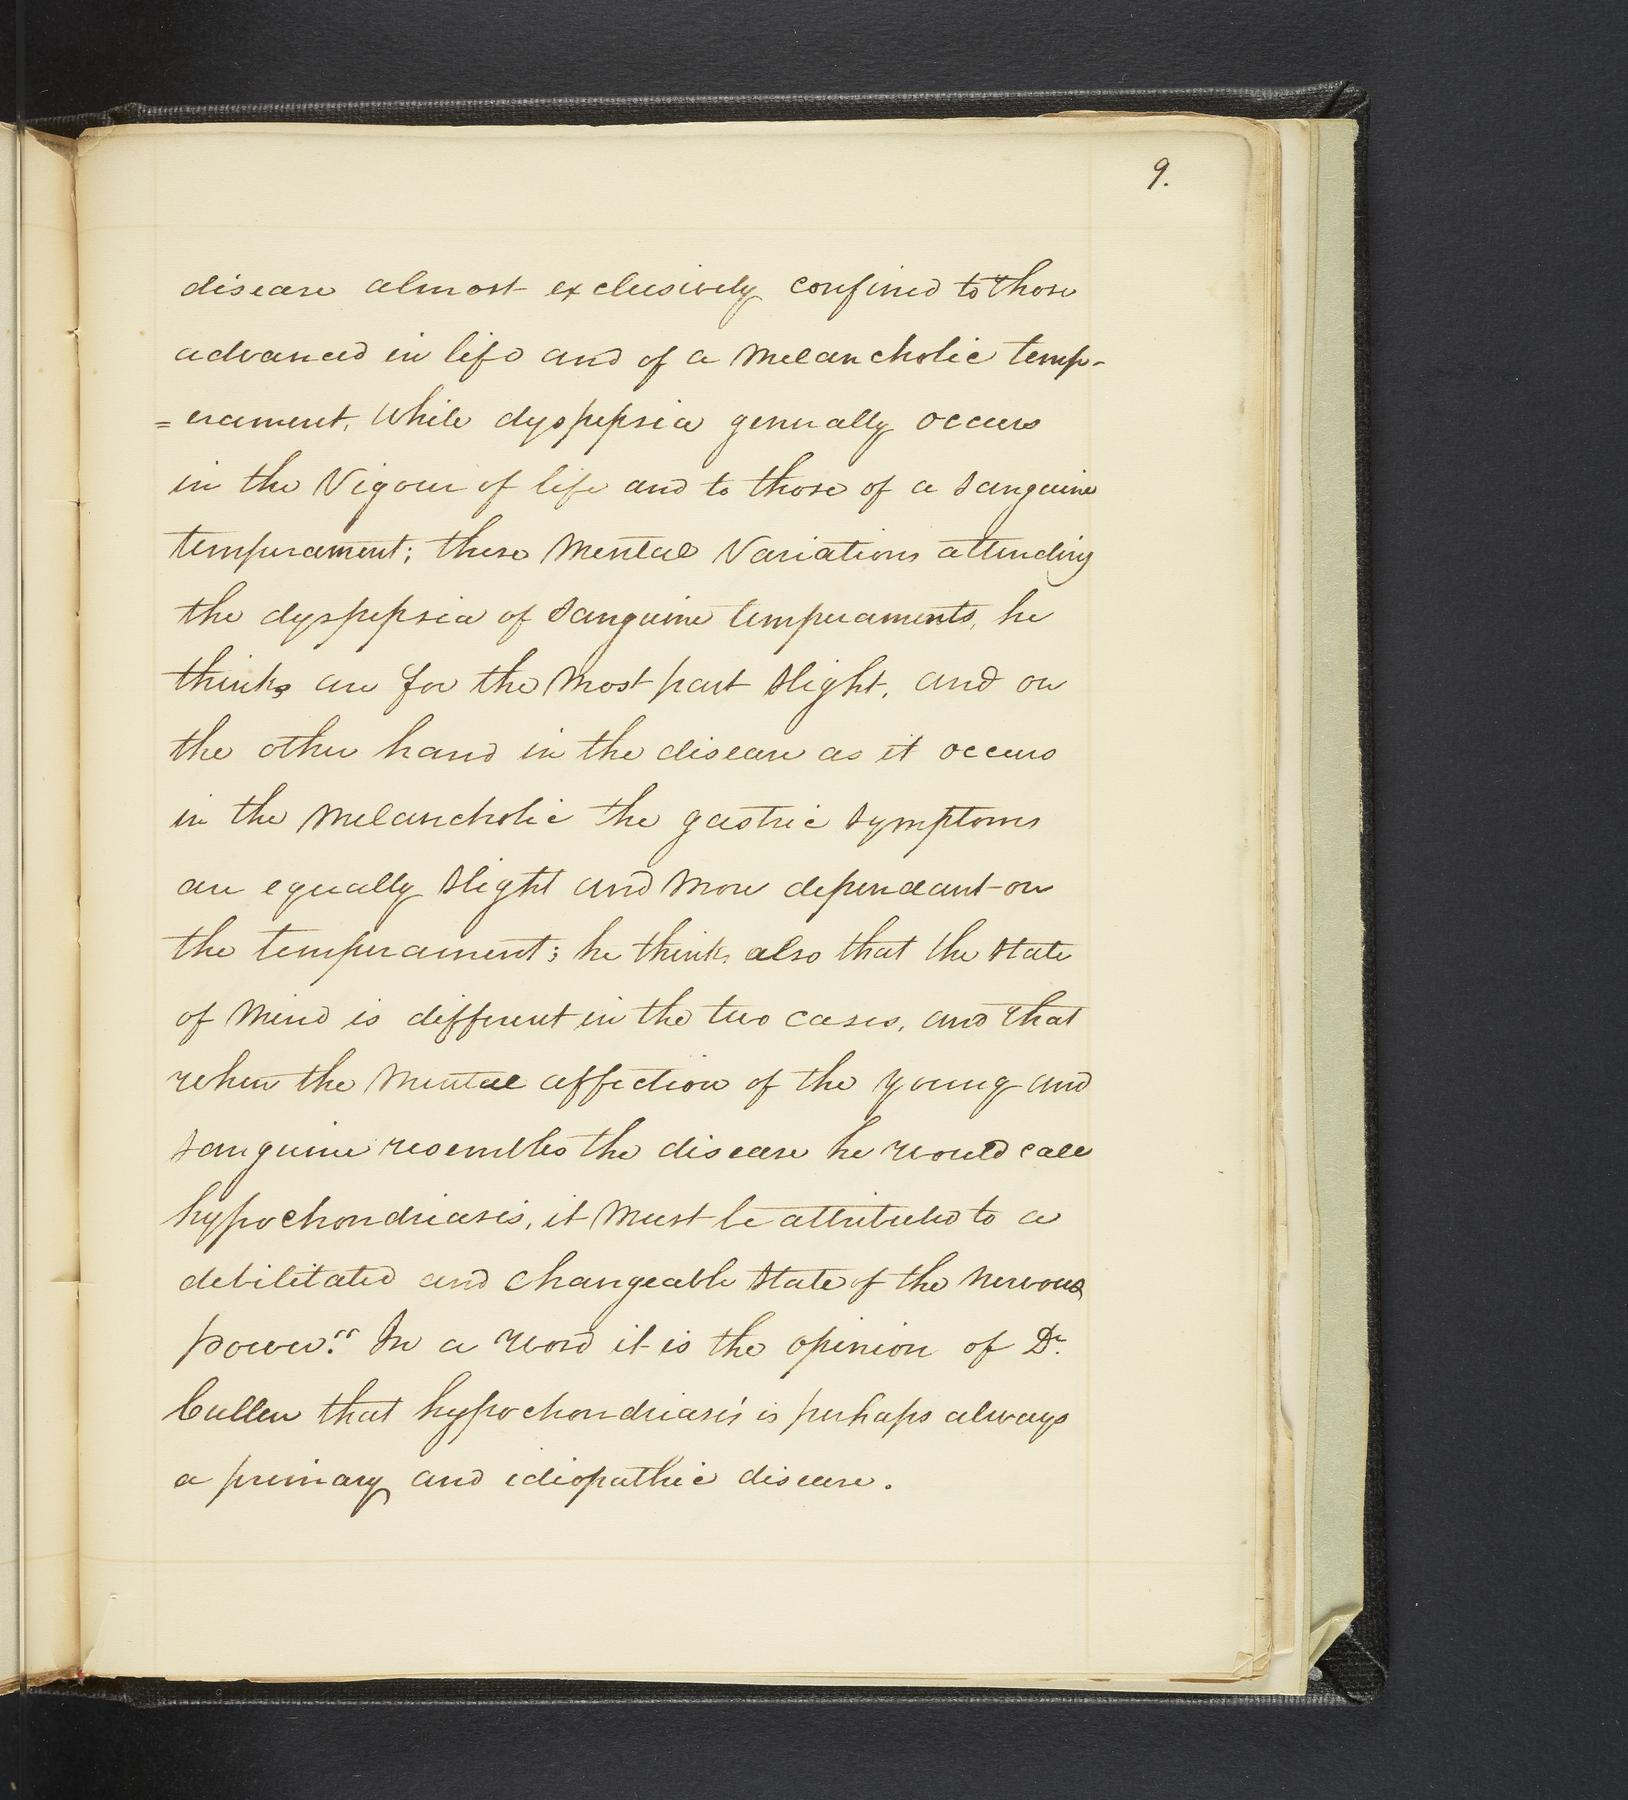 9.
disease almost exclusively confined to those
advanced in life and of a Melancholic temp-
=erament, While dyspepsia generally occurs
in the Vigour of life and to those of a sanguine
temperament; these Mental Variations attending
the dyspepsia of sanguine temperaments, he
thinks are for the Most part slight, and on
the other hand in the disease as it occurs
in the Melancholic the gastric symptoms
are equally slight and More dependant on
the temperament; he thinks also that the state
of Mind is different in the two cases, and that
when the Mental affection of the young and
sanguine resembles the disease he would call
hypochondriasis, it Must be attributed to a
debilitated and changeable state of the nervous
power." In a word it is the opinion of Dr.
Cullen that hypochondriasis is perhaps always
a primary and idiopathic disease.